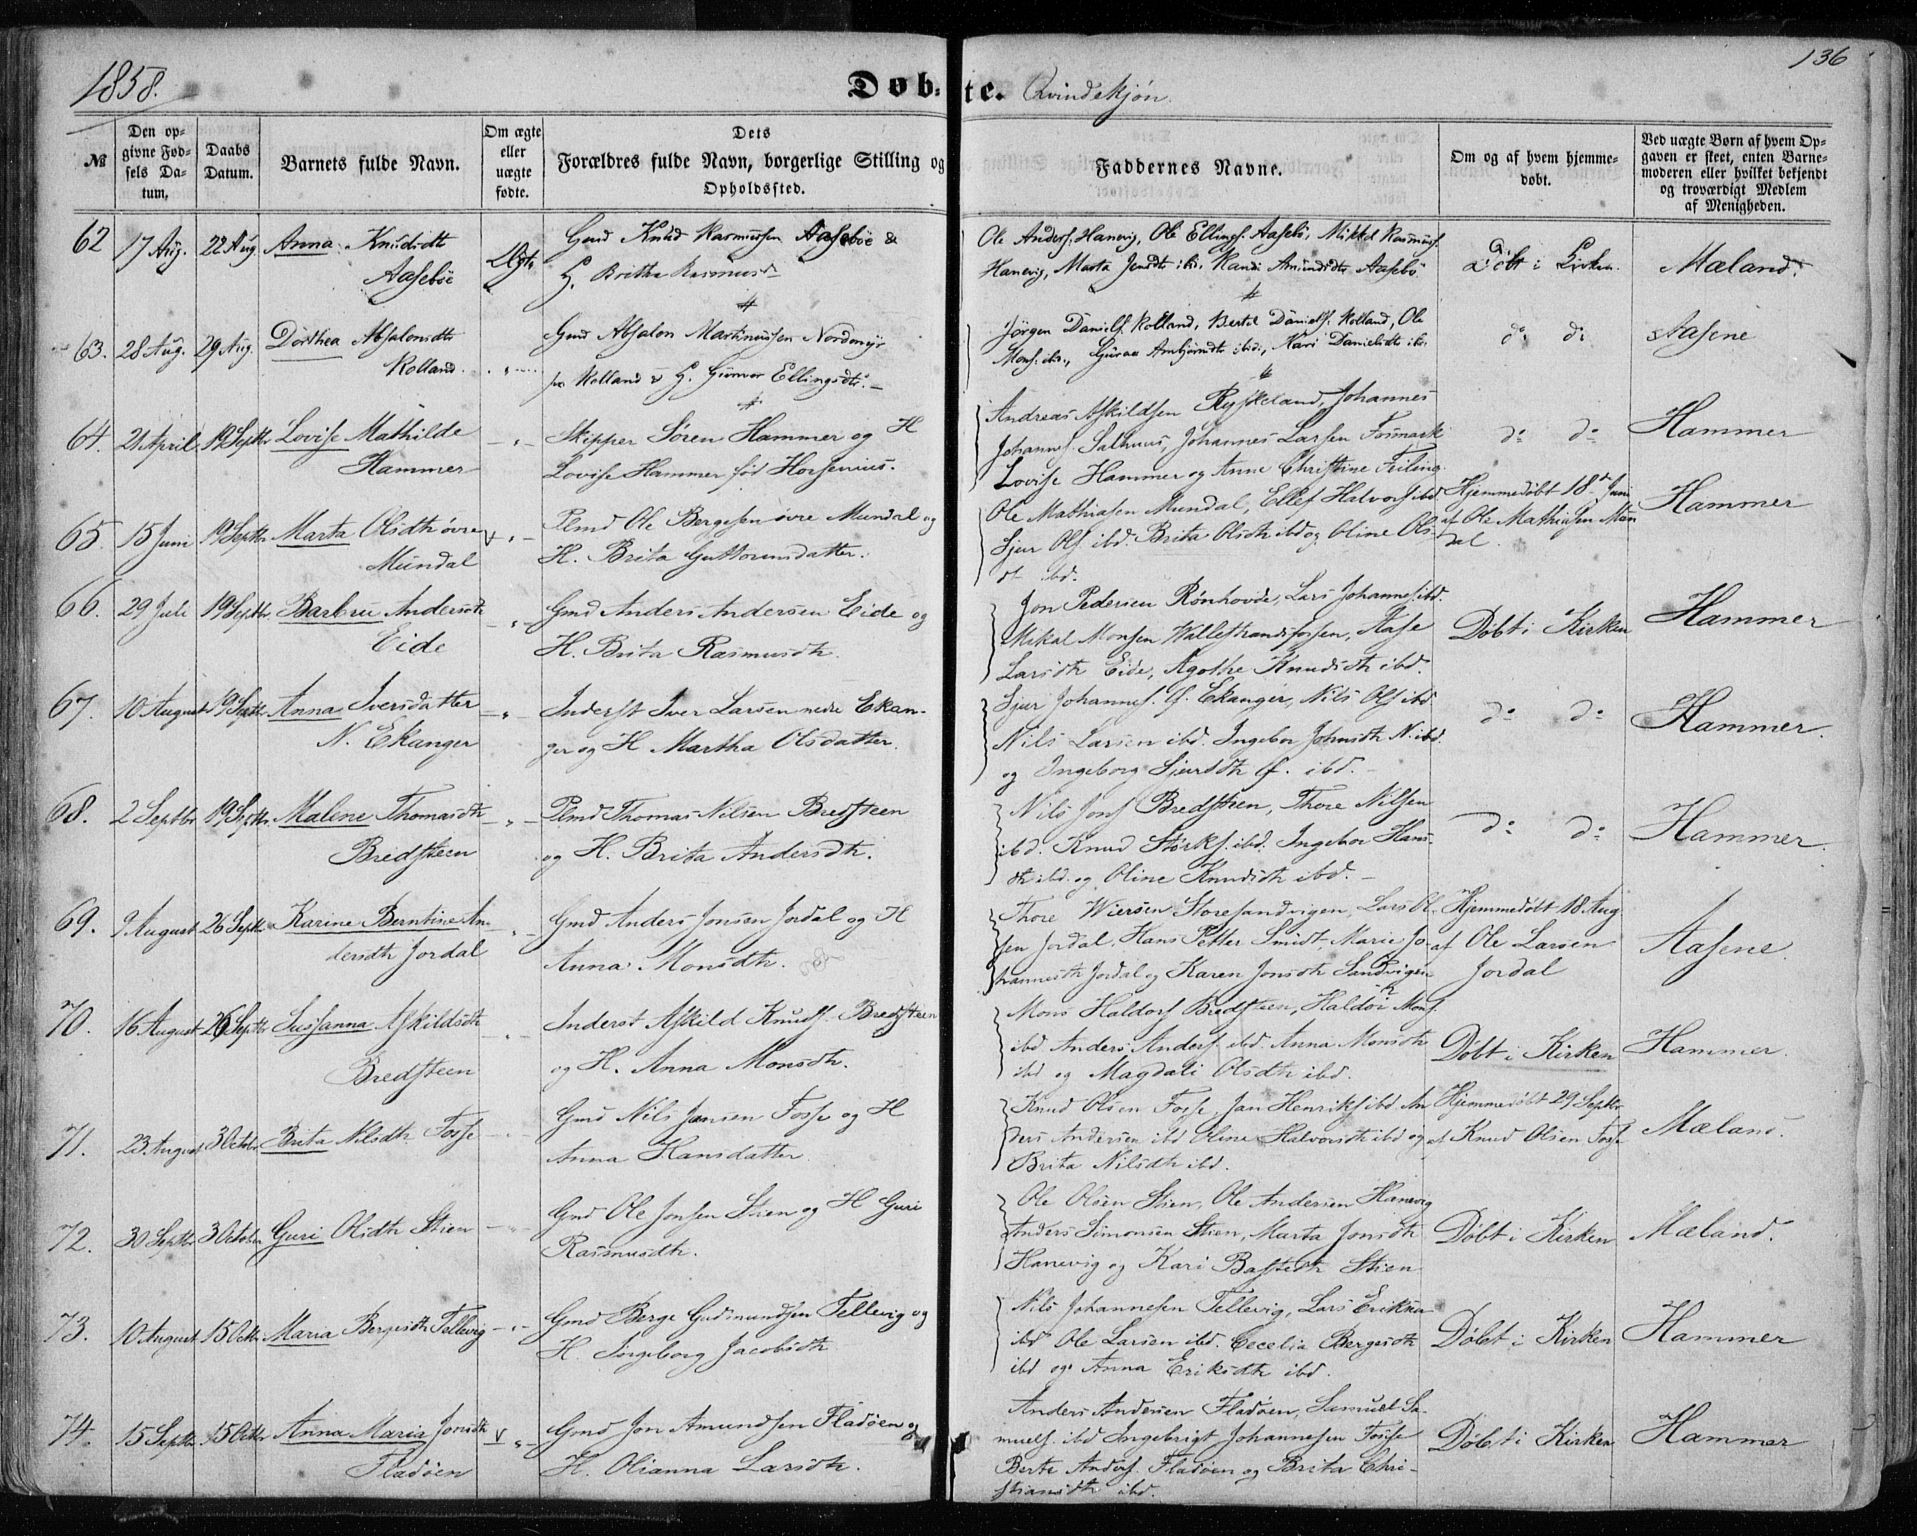 1858.
136
Døb-te. Qvindekjøn.
№
Den op-
givne Fød-
sels Da-
tum.
Daabs
Datum.
Barnets fulde Navn.
Om ægte
eller
uægte
fødte.
Dets
Forældres fulde Navn, borgerlige Stilling og
Opholdssted.
Faddernes Navne.
Om og af hvem hjemme-
døbt.
Ved uægte Børn af hvem Op-
gaven er skeet, enten Barne-
moderen eller hvilket bekjendt
og troværdigt Medlem
af Menigheden.
62 17 Aug. 22 Aug. Anna Knudsdt Ægte Gmd Knud Rasmussen Aasebøe &
Aasebøe H. Britha Rasmusd
Ole Anders. Hanevig, Ole Ellings. Aasebø, Mikkel Rasmuss.
Hanevig, Marta Jensdtr ibd. Randi Amundsdtr Aasebø
Døbt i Kirken. Mæland.
63. 28 Aug. 29 Aug. Dorthea Absalonsdtr Gmd Absalon Martinussen Nordmyr
Rolland. paa Rolland & H. Gunvor Ellingsdtr.
Jørgen Daniels. Rolland, Bertel Daniels. Rolland, Ole
Mons. ibd., Guroe Arnbjørnsdtr ibd., Kari Danielsdtr ibd.
do do Aasene
64. 21 April 19 Septbr Lovise Mathilde Skipper Søren Hammer og H
Hammer Lovise Hammer fød Horsenius.
Andreas Askildsen Ryskeland, Johannes
Johanns. Salhuus, Johannes Larsen Fosmark
Lovise Hammer og Anne Christine Feiling
do do Hammer
65. 15 Juni 19 Septbr Marta Olsdtr øvre Plmd Ole Bergesen øvre Mundal og
Mundal H. Brita Guttormsdatter.
Ole Mathiasen Mundal, Ellef Halvors ibd.
Sjur Ols. ibd. Brita Olsdtr ibd og Oline Ols-
dt ibd.
Hjemmedøbt 18d Juni
af Ole Mathiasen Mun
dal.
Hammer
66. 29 Juli 19 Septbr Barbru Andersdtr Gmd Anders Andersen Eide og
Eide H. Brita Rasmusdtr.
Jon Pedersen Rønhovde, Lars Johannes. ibd.
Mikal Monsen Wallestrandsfossen, Aase
Larsdtr Eide, Agothe Knudsdtr ibd.
Døbt i Kirken Hammer
67. 10 August 19 Septbr Anna Iversdatter Inderst Iver Larsen nedre Ekan-
N. Ekanger ger og H Martha Olsdatter.
Sjur Johannes. Ekanger, Nils Ols ibd
Nils Larsen ibd. Ingebor Johnsdtr N. ibd.
og Ingeborg Sjursdtr ibd.
do do Hammer.
68. 2 Septbr 19 Septbr Malene Thomasdtr Plmd Thomas Nilsen Bredsteen
Bredsteen og H. Brita Andersdtr.
Nils Jons Bredsteen, Thore Nilsen
ibd. Knud Størks. ibd. Ingebor Hans-
dtr ibd. og Oline Knudsdtr ibd.
do do Hammer.
69. 9 August 26 Septbr Karine Berntine An- Gmd Anders Jonsen Jordal og H
dersdtr Jordal Anna Monsdtr.
Thore Wiersen Storesandvigen, Lars Ol-
sen Jordal, Hans Petter Smidt, Marie Jo-
hannesdtr Jordal og Karen Jonsdtr Sandvigen
Hjemmedøbt 18 Aug
af Ole Larsen
Jordal
Aasene.
70. 16 August 26 Septbr Susanna Askildsdtr Inderst Askild Knuds. Bredsteen
Bredsteen og H. Anna Monsdtr.
Mons Haldors Bredsteen, Haldor Mons.
ibd Anders Anders. ibd. Anna Monsdtr
ibd og Magdali Olsdtr ibd.
Døbt i Kirken Hammer.
71. 23 August 3 Octobr Brita Nilsdtr Fosse Gmd Nils Jansen Fosse og H
Anna Hansdatter
Knud Olsen Fosse, Jan Henriks ibd An-
ders Andersen ibd Oline Halvorsdtr ibd og
Brita Nilsdtr ibd.
Hjemmedøbt 29 Septbr
af Knud Olsen Fosse
Mæland.
72. 30 Septbr 3 October Guri Olsdtr Stien Gmd Ole Jonsen Stien og H Guri
Rasmusdtr.
Ole Olsen Stien, Ole Andersen Hanevig
Anders Simonsen Stien, Marta Jonsdtr
Hanevig og Kari Bastedtr Stien
Døbt i Kirken Mæland.
73. 10 August 15 Octbr Maria Bergesdtr Tellevig Gmd Berge Gudmundsen Tellevig og
H. Ingeborg Jacobsdtr
Nils Johannesen Tellevig, Lars Eriksen
ibd Ole Larsen ibd. Cecelia Bergesdtr
ibd og Anna Eriksdtr ibd.
Døbt i Kirken Hammer
74. 15 Septbr 15 Octbr Anna Maria Jonsdtr Gmd Jon Amundsen Fladøen og
Fladøen H. Olianna Larsdtr.
Anders Andersen Fladøen, Samuel Sa-
muels. ibd Ingebrigt Johannesen Fosse
Berte Anders. Fladøen og Brita Chri-
stiansdtr ibd.
Døbt i Kirken Hammer